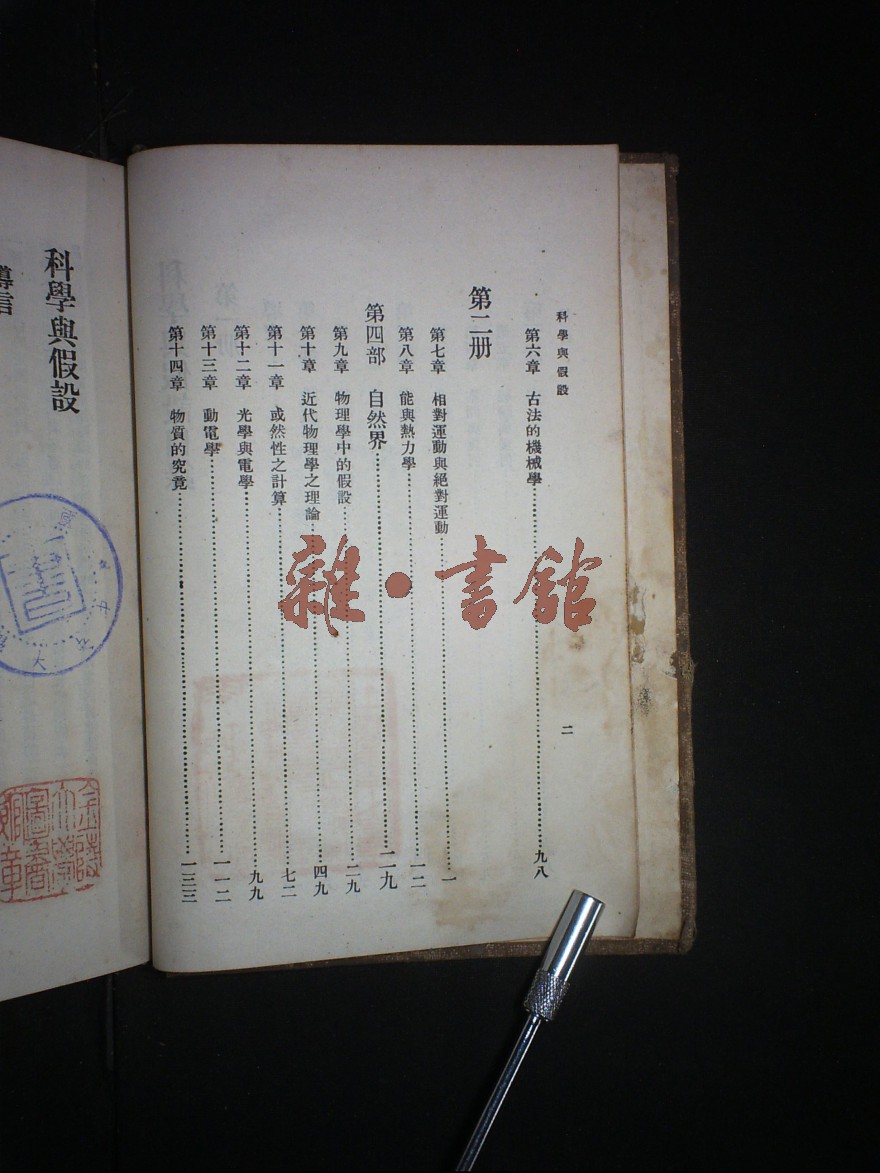 科學與假設
第六章 古法的機械學 九八
第二册
第七章 相對運動與絕對運動 一
第八章 能與熱力學 一二
第四部 自然界 二九
第九章 物理學中的假設 二九
第十章 近代物理學之理論 四九
第十一章 或然性之計算 七二
第十二章 光學與電學 九九
第十三章 動電學 一一二
第十四章 物質的究竟 一三三
二
科學與假設
導言
雜·書館
金陵
大學
圖書
館章